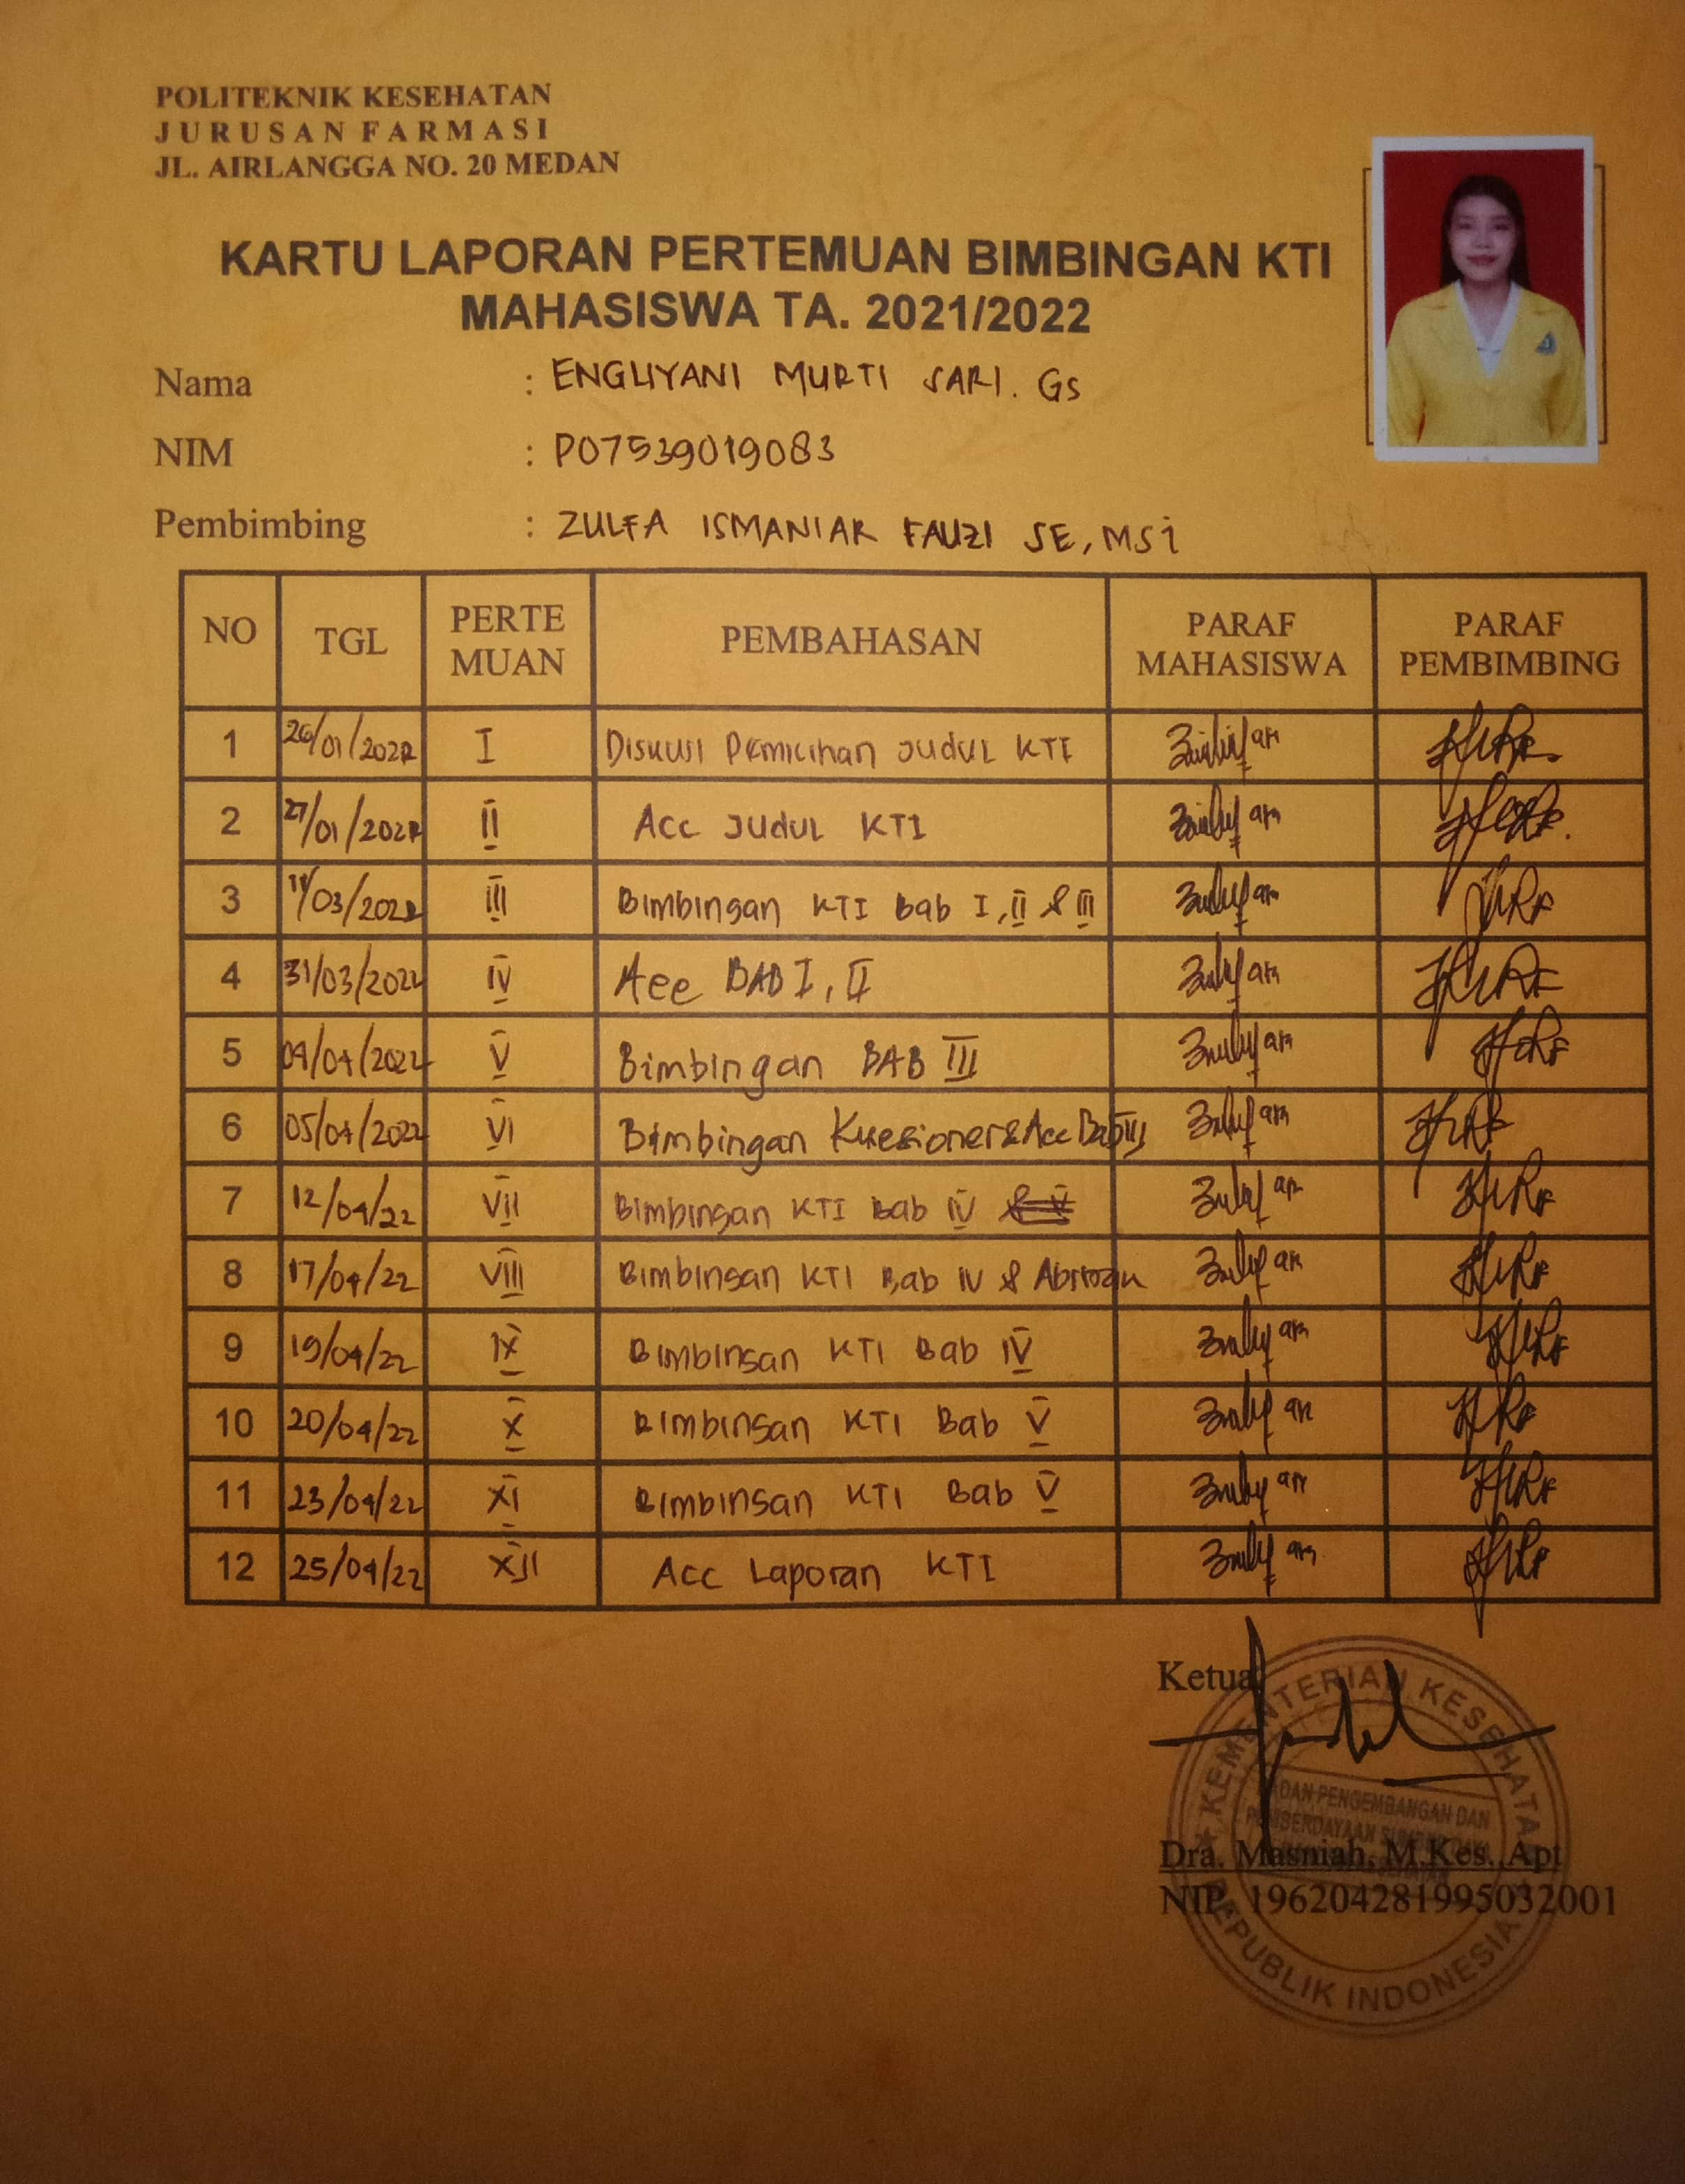 POLITEKNIK KESEHATAN
JURUSAN FARMASI
JL. AIRLANGGA NO. 20 MEDAN
KARTU LAPORAN PERTEMUAN BIMBINGAN KTI
MAHASISWA TA. 2021/2022
Nama : ENGLIYANI MURTI SARI. GS
NIM : P07539019083
Pembimbing : ZULFA ISMANIAR FAUZI SE, MSi
NO TGL PERTE MUAN PEMBAHASAN PARAF MAHASISWA PARAF PEMBIMBING
1 26/01/2022 I Diskusi Pemilihan Judul KTI
2 27/01/2022 II Acc Judul KTI
3 /03/2022 III Bimbingan KTI Bab I, II & III
4 31/03/2022 IV Acc BAB I, II
5 04/04/2022 V Bimbingan BAB III
6 05/04/2022 VI Bimbingan Kuesioner & Acc Bab III
7 12/04/22 VII Bimbingan KTI Bab IV
8 17/04/22 VIII Bimbingan KTI Bab IV &
9 19/04/22 IX Bimbingan KTI Bab IV
10 20/04/22 X Bimbingan KTI Bab V
11 23/04/22 XI Bimbingan KTI Bab V
12 25/04/22 XII Acc Laporan KTI
Ketua
KEMENTERIAN KESEHATAN
BADAN PENGEMBANGAN DAN
PEMBERDAYAAN SUMBER DAYA
Dra. Masniah, M.Kes., Apt
NIP. 196204281995032001
REPUBLIK INDONESIA